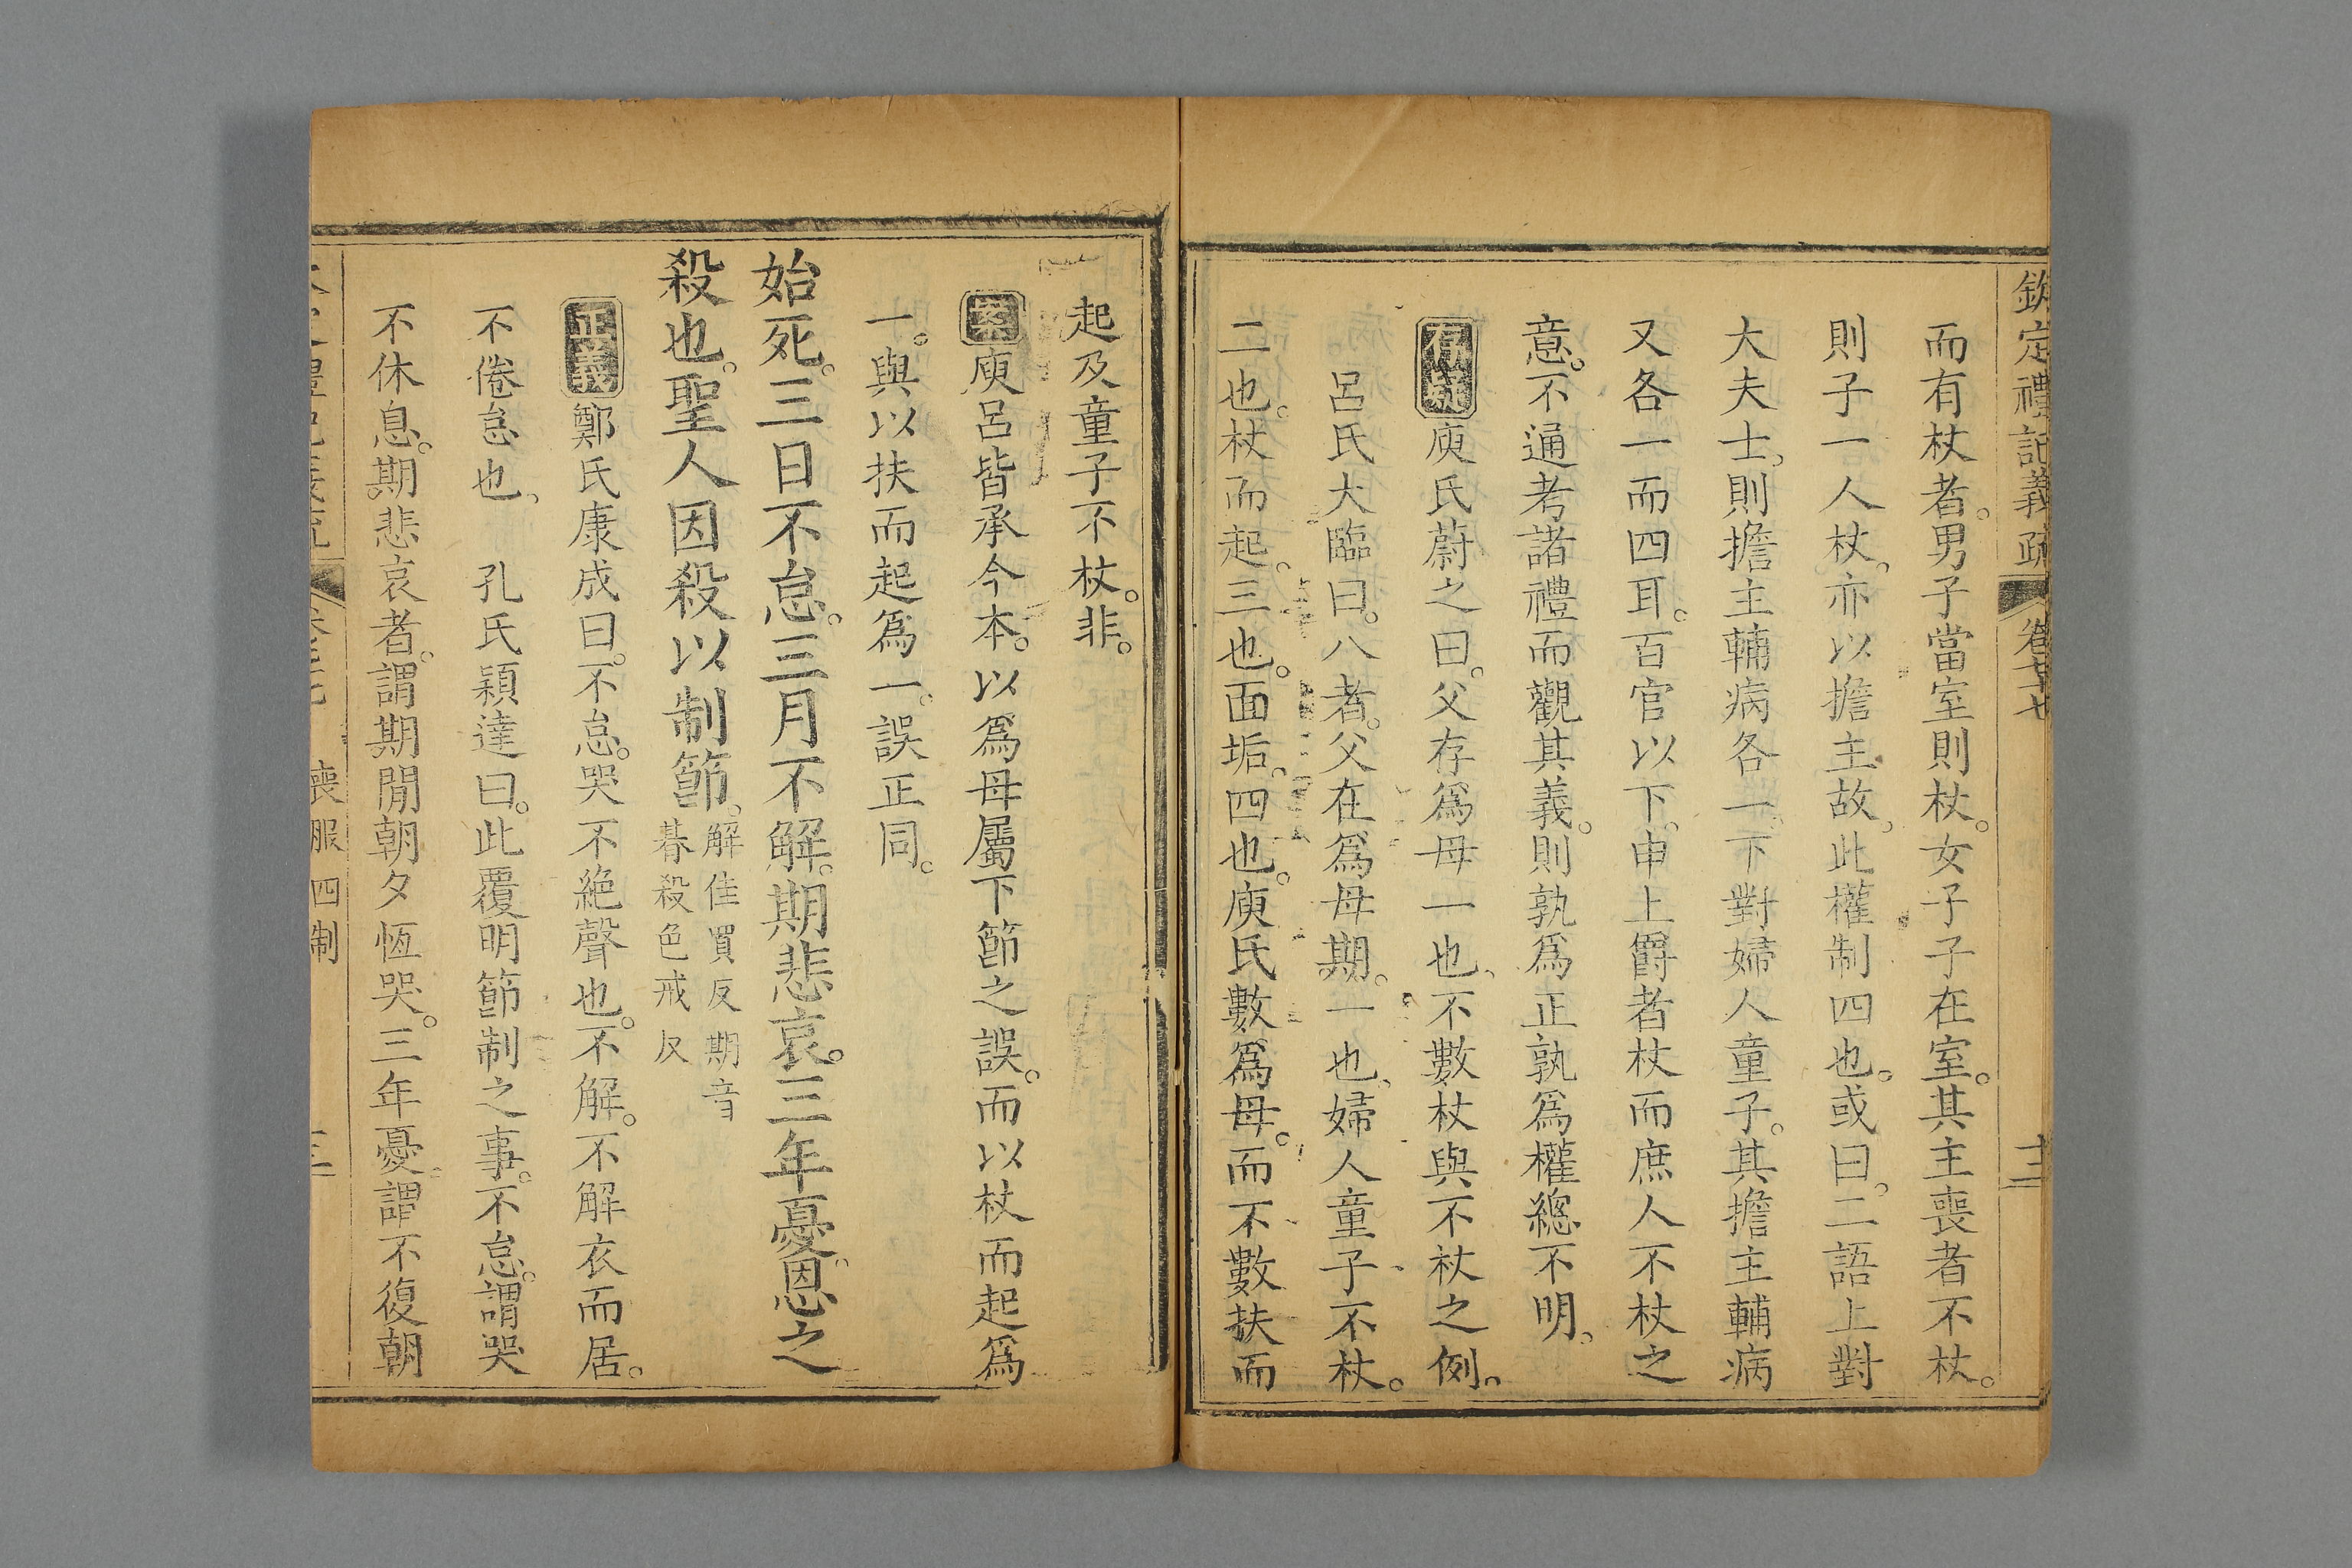 欽定禮記義疏 卷七十七 十三
而有杖者。男子當室則杖。女子子在室。其主喪者不杖。
則子一人杖。亦以擔主故。此權制四也。或曰。二語上對
大夫士。則擔主輔病各一。下對婦人童子。其擔主輔病
又各一而四耳。百官以下。申上爵者杖而庶人不杖之
意。不通考諸禮而觀其義。則孰爲正孰爲權。總不明。
存疑庾氏蔚之曰。父存爲母一也。不數杖與不杖之例。
呂氏大臨曰。八者。父在爲母期。一也。婦人童子不杖。
二也。杖而起。三也。面垢。四也。庾氏數爲母。而不數扶而
起及童子不杖。非。
案庾呂皆承今本。以爲母屬下節之誤。而以杖而起爲
一。與以扶而起爲一。誤正同。
始死。三日不怠。三月不解。期悲哀。三年憂。恩之
殺也。聖人因殺以制節。解佳買反期音
朞殺色戒反
正義鄭氏康成曰。不怠。哭不絕聲也。不解。不解衣而居。
不倦怠也。 孔氏穎達曰。此覆明節制之事。不怠。謂哭
不休息。期悲哀者。謂期閒朝夕恆哭。三年憂。謂不復朝
喪服四制